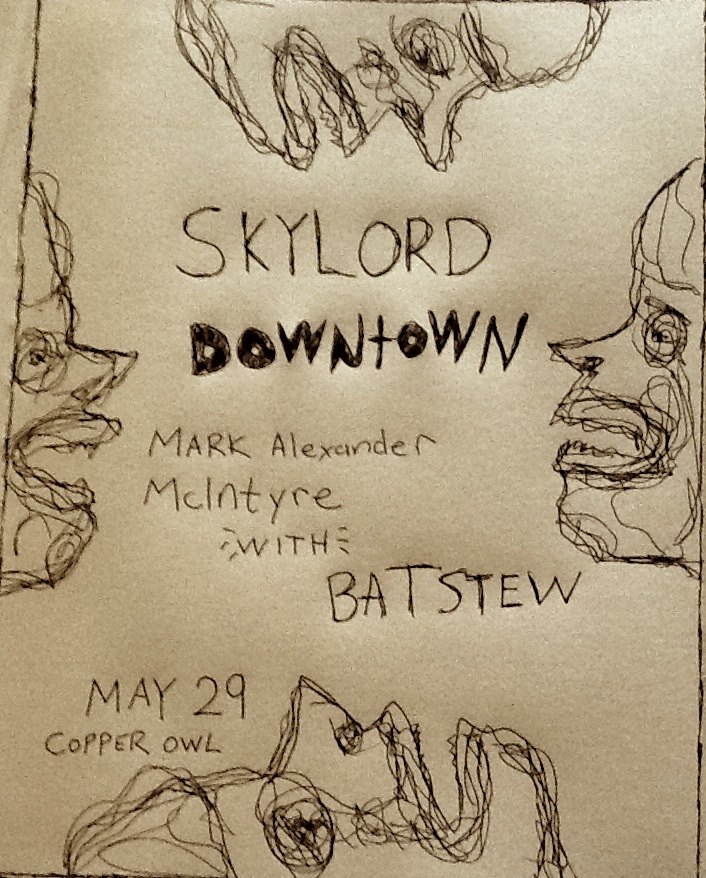 SKYLORD
DOWNtOWN
MARK Alexander
McIntyre
WITH
BATSTEW
MAY 29
COPPER OWL